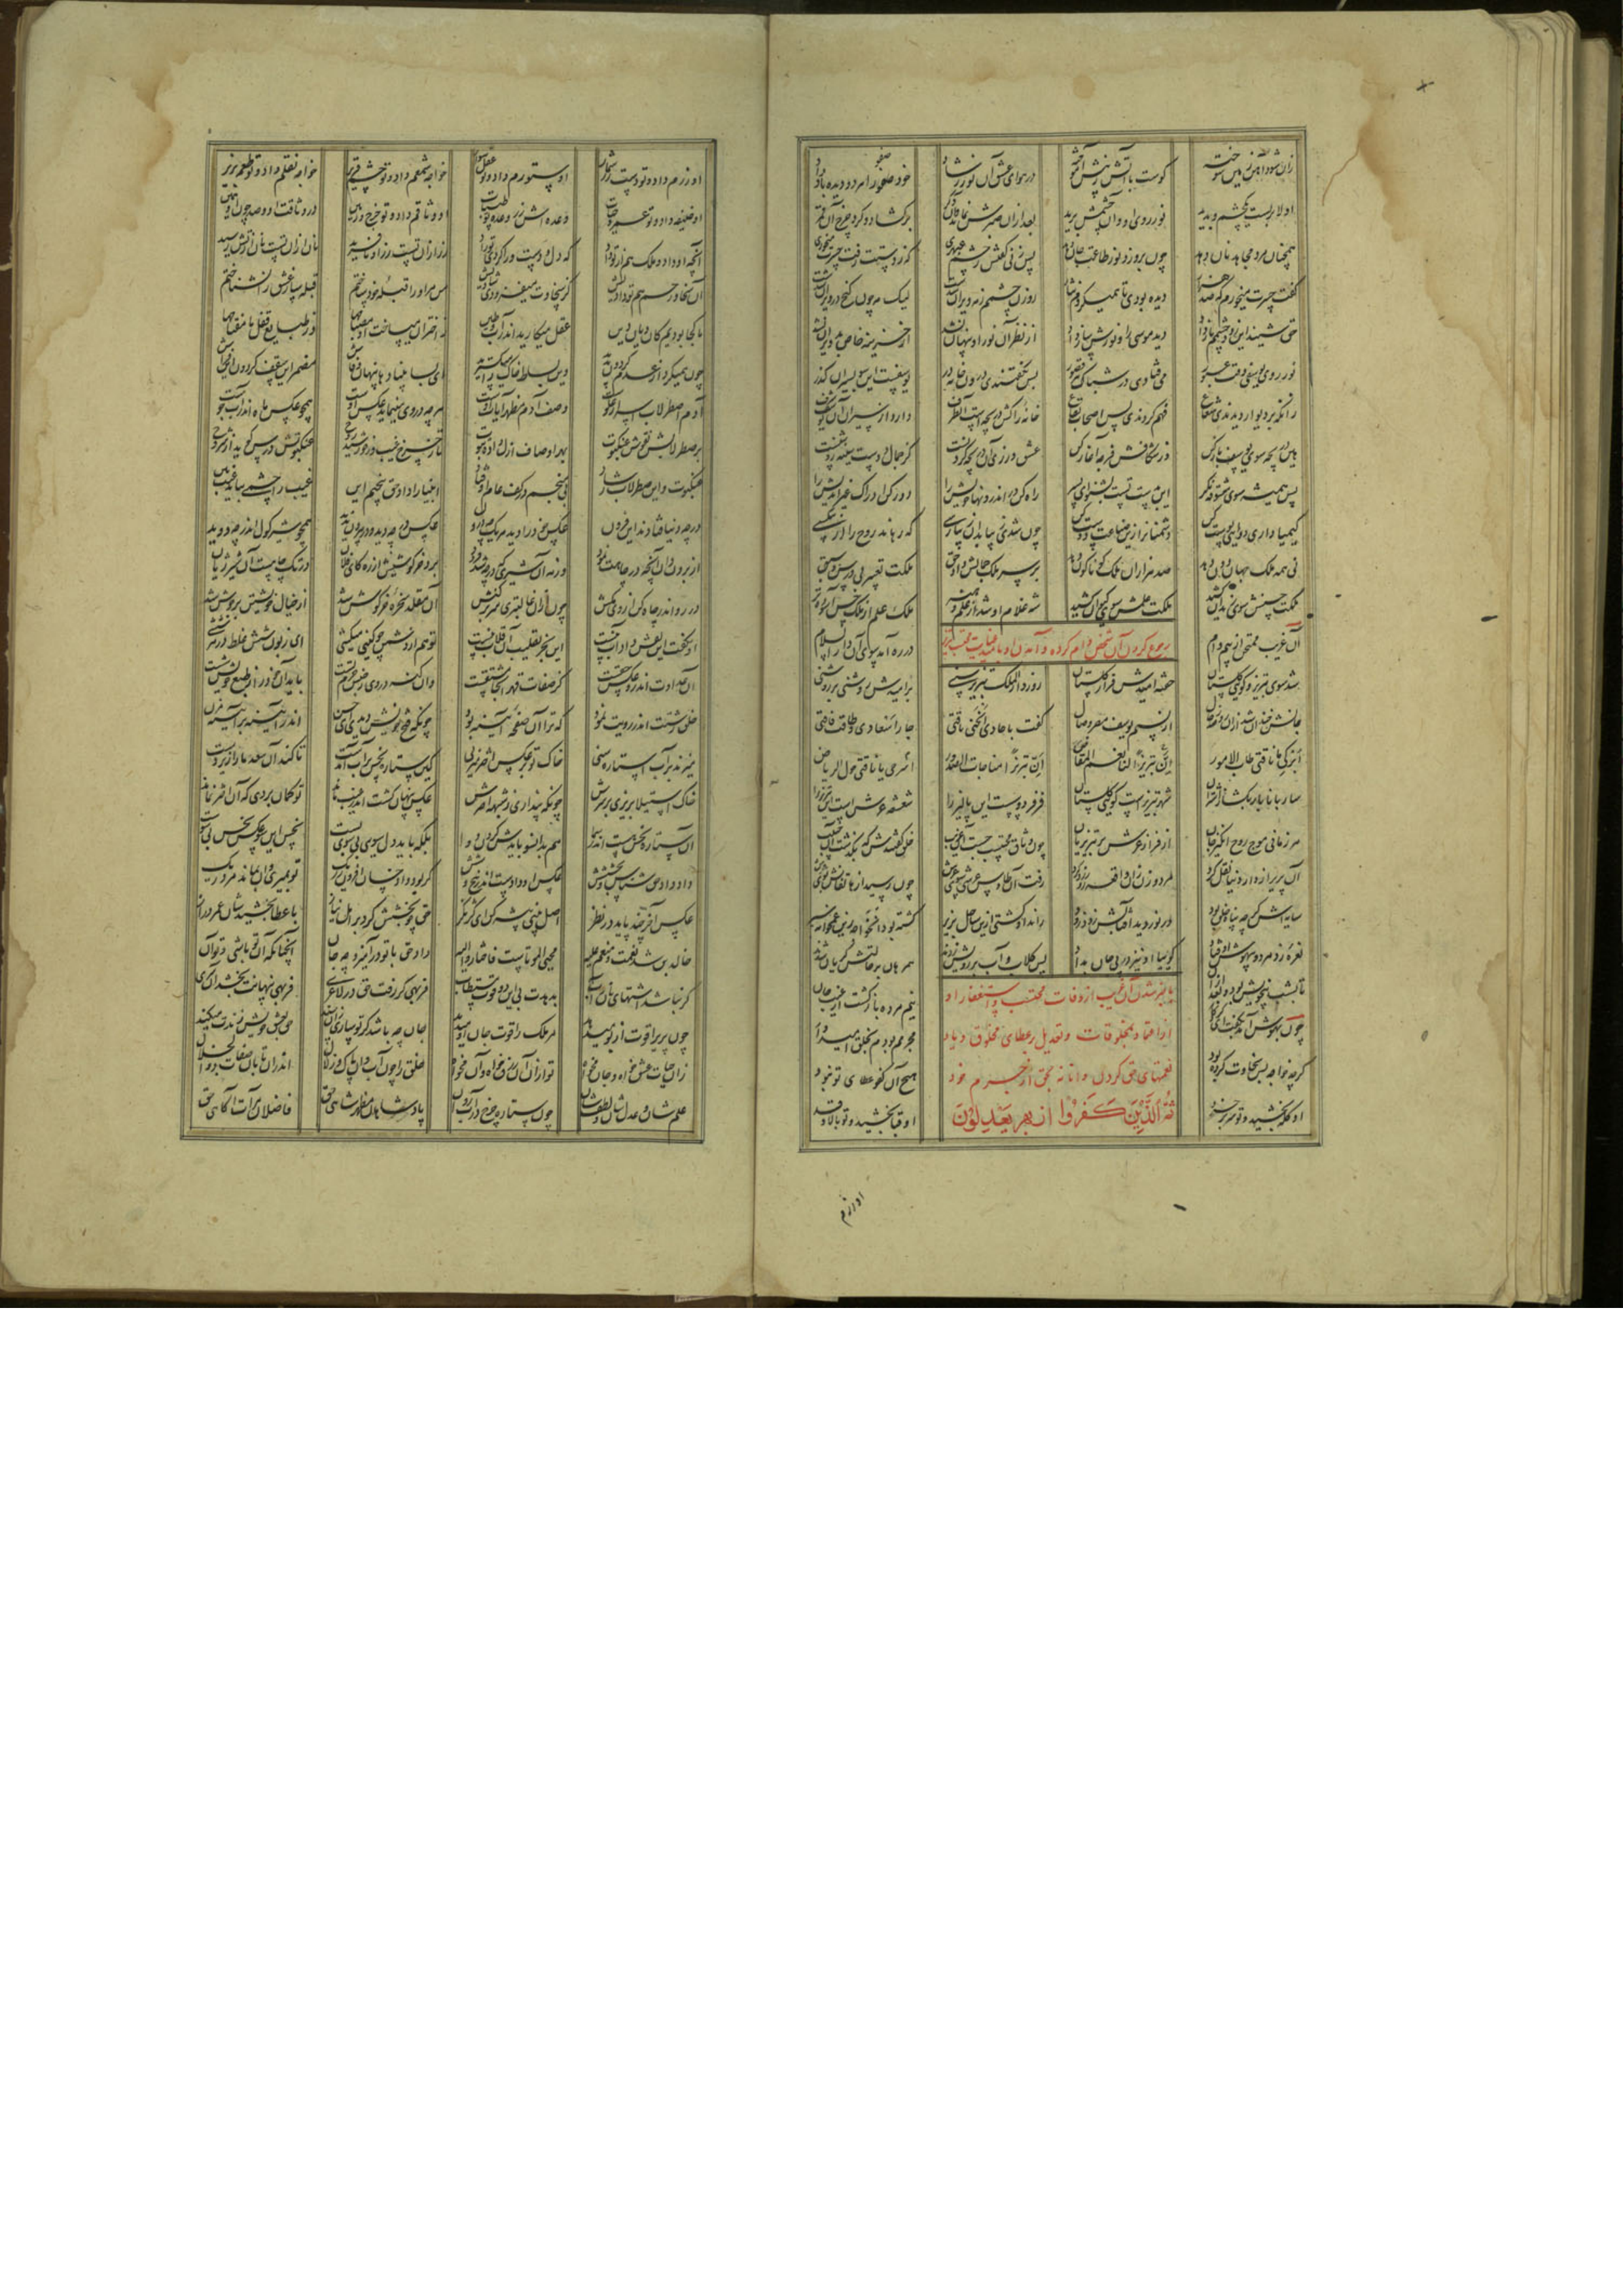 زان شود آهن زمین سوخته گوست با آتش ز پیش آموخته در هوای عشق آن نور رشاد خود صفورا هر دو دیده باد داد
اولا بربست یکچشم و بدید نور روی او و آن چشمش پرید بعد ازان صبرش نماند و آن دگر برگشاد و کرد خرج آن قمر
همچنان مرد مجاهد نان دهد چون برو زد نور طاعت جان دهد پس زنی گفتش ز چشم عبهری که ز دستت رفت حسرت میخوری
گفت حسرت میخورم که صد هزار دیده بودی تا همیکردم نثار روزن چشمم ز مه ویران شدست لیک مه چون گنج در ویران نشست
حق شنید این زو دو چشمش باز داد دید موسی را و نورش ساز داد از نظر آن نور او پنهان نشد از خزینه خاص
نور روی یوسفی وقت عبور می فتادی در شباک هر قصور پس بگفتندی درون خانه در یوسفست این سو بسیران گذر
زانکه بر دیوار دیدندی شعاع فهم کردندی پس اصحاب بقاع خانه را کش دریچه است آن طرف دارد از سیران آن یوسف شرف
هین دریچه سوی یوسف باز کن وز شکافش فرجه آغاز کن عشق ورزی آن دریچه کردنست کز جمال دوست سینه روشنست
پس همیشه سوی معشوقه نگر این بدست تست بشنو ای پسر راه کن در اندرونها خویش را دور کن ادراک غیر اندیش را
کیمیا داری دوای پوست کن دشمنانرا زین صناعت دوست کن چون شدی زیبا بدان زیبا رسی که رهاند روح را از بیکسی
نی همه ملک جهان دون دهد صد هزاران ملک گوناگون دهد بر سر ملک جمالش داد حق ملکت تعبیر بی درس و سبق
ملکت حسنش سوی زندان کشید ملکت علمش سوی کیوان کشید شه غلام او شد از علم و هنر ملک علم از ملک حسن آسوده تر
رجوع کردن آن شخص وام کرده و آمدن او بامید عنایت محتسب تبریز
آن غریب ممتحن از بیم وام در ره آمد سوی آن دار السلام
شد سوی تبریز و کوی گلستان خفته امیدش فراز گلستان زد ز دار الملک تبریز سنی بر امیدش روشنی بر روشنی
جانش خندان شد ازان روضه رجال از نسیم یوسف و مصر وصال گفت یا حادی انخ لی ناقتی جاء اسعادی و طارت فاقتی
ابرکی یا ناقتی طاب الامور ان تبریزا لنا نعم المفاض ان تبریزا مناخات الصدور اسرحی یا ناقتی حول الریاض
ساربانا بار بگشا ز اشتران شهر تبریزست و کوی گلستان فر فردوسست این پالیز را شعشعه عرشست این تبریز را
هر زمانی موج روح انگیز جان از فراز عرش بر تبریزیان چون وثاق محتسب جست آن غریب خلق گفتندش که بگذشت آن حبیب
آن پریر از دار دنیا نقل کرد مرد و زن از واقعه او روی زرد رفت آن طاوس عرشی سوی عرش چون رسید از هاتفانش بوی عرش
سایه اش گرچه پناه خلق بود در نوردید آفتابش زود زود راند او کشتی ازین ساحل پریر گشته بود آن خواجه زین غمخانه سیر
نعره زد مرد و بیهوش اوفتاد گوییا او نیز در پی جان بداد پس گلاب و آب بر رویش زدند همرهان بر حالتش گریان شدند
تا بشب بیخویش بود و بعد ازان نیم مرده بازگشت از غیب جان
چون بهوش آمد بگفت ای کردگار مجرمم بودم بخلق امیدوار
گرچه خواجه بس سخاوت کرده بود هیچ آن کفو عطای تو نبود
او کله بخشید و تو سر پر خرد او قبا بخشید و تو بالا و قد
باخبر شدن آن غریب از وفات محتسب و استغفار او
از اعتماد بمخلوقات و تعدیل بر عطای مخلوق و یاد
نعمتهای حق کردن و انابه بحق از جرم خود
ثم الذین کفروا بربهم یعدلون
او زرم
او زرم داد و تو دست زر شمار او ستورم داد و تو عقل سوار خواجه شمعم داد و تو چشم قریر خواجه نقلم داد و تو طعمه پذیر
او وظیفه داد و تو عمر و حیات وعده اش زر وعده تو طیبات او وثاقم داد و تو چرخ و زمین در وثاقت او و صد چون او سمین
آنچه او داد و ملک هم از تو داد که دل و دست ورا کردی تو راد زر ازان تست زر او نافرید نان ازان تست نان از تش رسید
آن سخا و رحم هم تو دادیش کز سخاوت میفزودی شادیش من مر او را قبله خود ساختم قبله ساز اصل را نشناختم
ما کجا بودیم کان دیان دین عقل میکارید اندر آب و طین
چون همیکرد از عدم گردون پدید وین بساط خاک را میگسترید ای بسا بنیادها پنهان و فاش مضمر این سقف کرد و این فراش
آدم اصطرلاب اسرار علوست وصف آدم مظهر آیات اوست هرچه در وی مینماید عکس اوست همچو عکس ماه اندر آب جوست
بر صطرلابش نقوش عنکبوت بهر اوصاف ازل دارد ثبوت تا ز چرخ غیب وز خورشید روح عنکبوتش درس گوید از شروح
عنکبوت و این صطرلاب رشاد بی منجم در کف عام اوفتاد انبیا را داد حق تنجیم این غیب را چشمی بباید غیب بین
در چه دنیا فتادند این قرون عکس خود را دید هر یک چه درون عکس در چه دید و در بیرون ندید همچو شیر گول اندر چه دوید
از برون دان آنچه در چاهت نمود ورنه آن شیری که در چه شد فرود برد خرگوشیش از ره کای فلان در تک چاهست آن شیر ژیان
در رو اندر چاه کین از وی بکش چون ازو غالب تری سر بر کنش آن مقلد سخره خرگوش شد از خیال خویشتن پر جوش شد
او نگفت این نقش داد آب نیست این بجز تقلیب آن قلاب نیست تو هم از دشمن چو کینی میکشی ای زبون شش غلط در هر ششی
آن عداوت اندرو عکس حقست کز صفات قهر آنجا مشتقست وان گنه در وی ز جنس جرم تست باید آن خو را ز طبع خویش شست
خلق زشتت اندر رویت نمود که ترا آن صفحه آیینه بود چونکه قبح خویش دیدی ای حسن اندر آیینه بر آیینه مزن
میزند بر آب استاره سنی خاک تو بر عکس اختر میزنی کین ستاره نحس در آب آمدست تا کند آن سعد ما را زیردست
خاک استیلا بریزی بر سرش چونکه پنداری ز شبهه اخترش عکس پنهان گشت اندر غیب راند تو گمان بردی که آن اختر نماند
آن ستاره نحس هست اندر سما هم بدانسو بایدش کردن دوا بلکه باید دل سوی بیسوی بست نحس این سو عکس نحس بیسو است
داد داد حق شناس و بخششش عکس آن دادست اندر پنج و شش گر بود داد خسان افزون ز ریگ تو بمیری وان بماند مرده ریگ
عکس آخر چند پاید در نظر اصل بینی پیشه کن ای کژ نگر حق چو بخشش کرد بر اهل نیاز با عطا بخشیدشان عمر دراز
خالدین شد نعمت و منعم علیه محیی الموتاست فاجتازوا الیه داد حق با تو در آمیزد چه جان آنچنانکه آن تو باشی و تو آن
گر نباشد اشتهای نان و آب بدهدت بی این دو قوت مستطاب فربهی گر رفت حق در لاغری فربهی پنهانت بخشد آن سری
چون پریرا قوت از بو میدهد هر ملک را قوت جان او میدهد جان چه باشد که تو سازی زان سند حق بعشق خویش زندت میکند
زو حیات عشق خواه و جان مخواه تو ازو آن رزق خواه و نان مخواه خلق را چون آب دان صاف و زلال اندران تابان صفات ذو الجلال
علم شان و عدل شان و لطفشان چون ستاره چرخ در آب روان پادشاهان مظهر شاهی حق فاضلان مرآت آگاهی حق